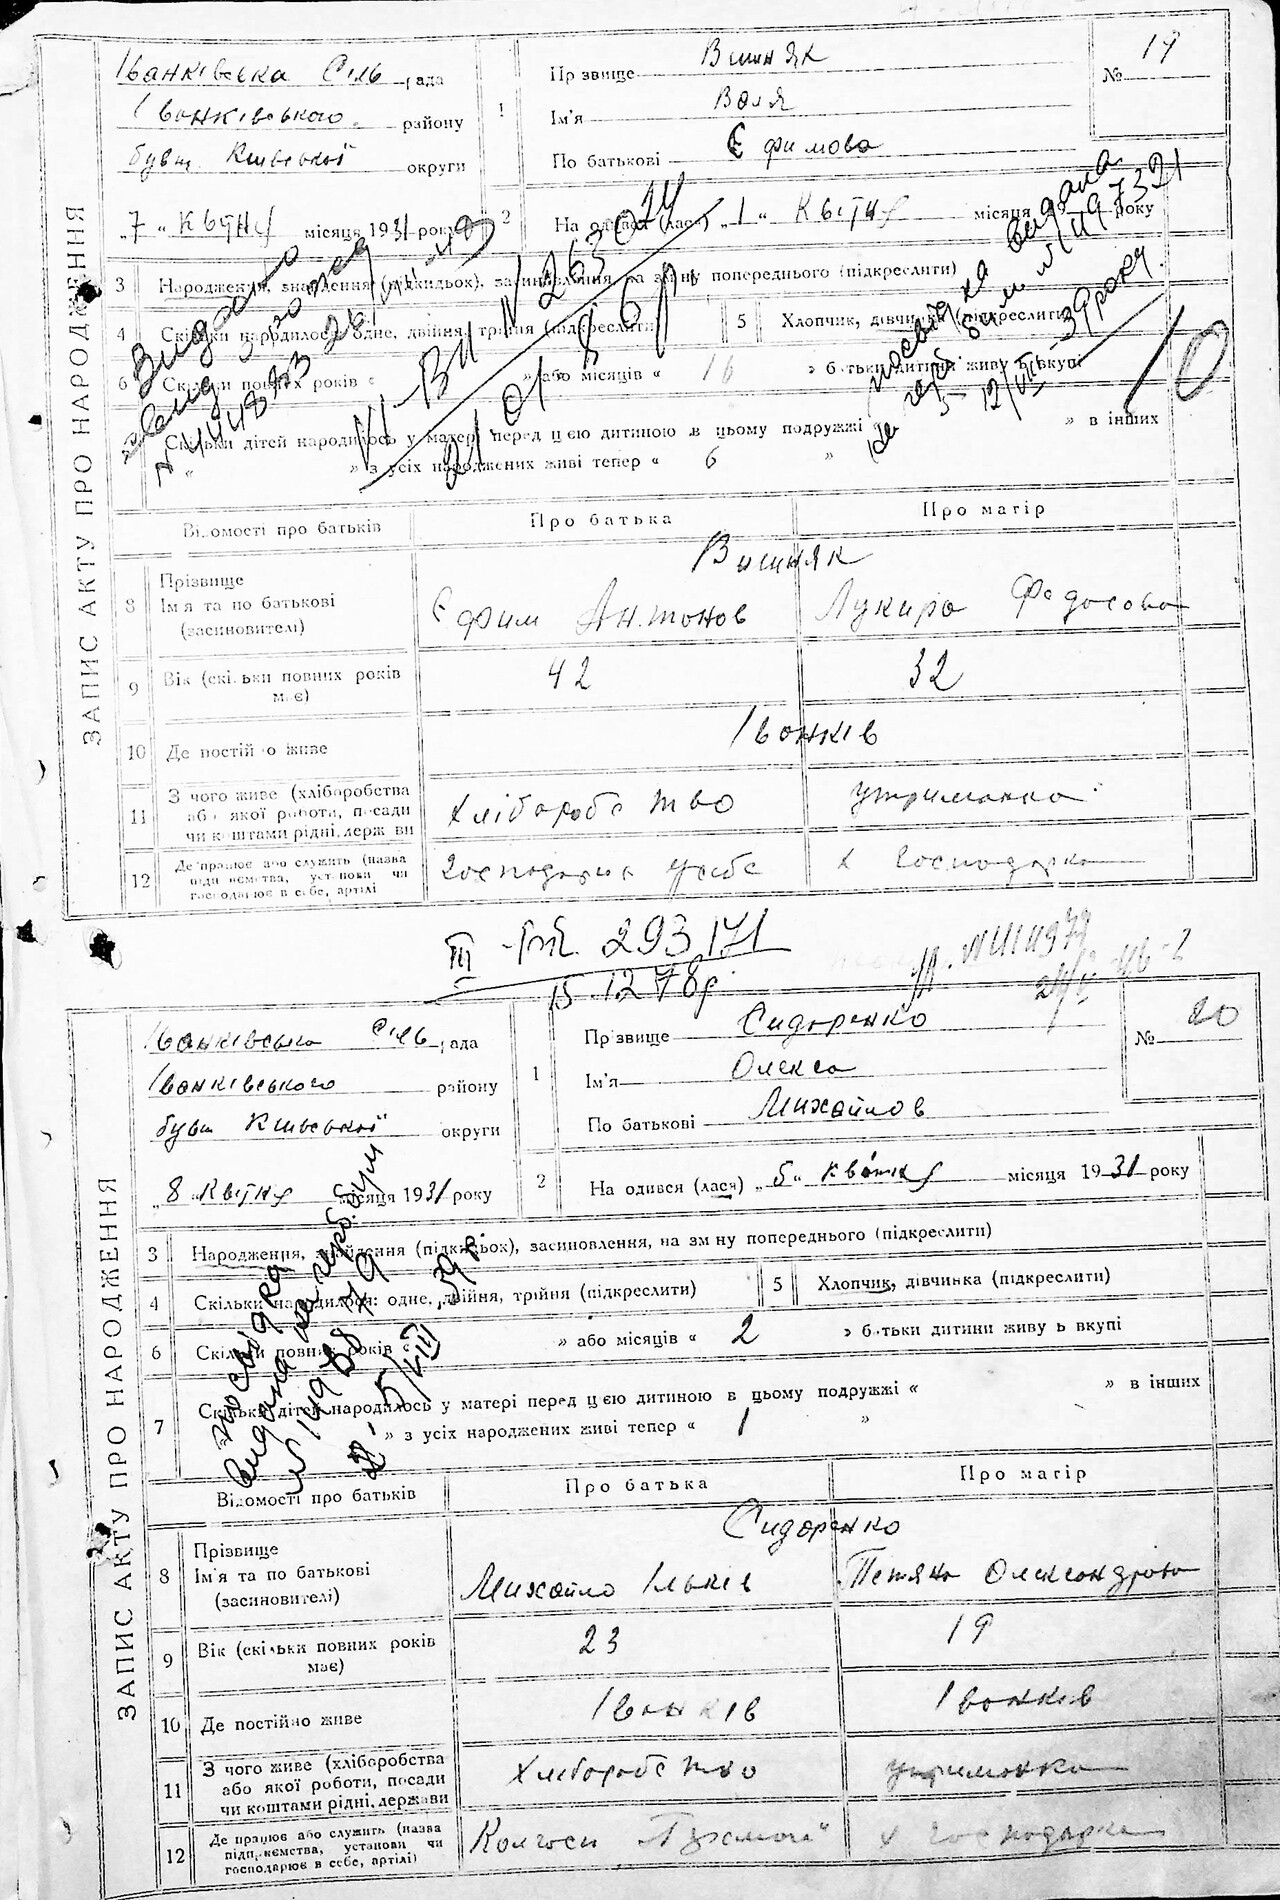 ЗАПИС АКТУ ПРО НАРОДЖЕННЯ
Іванківська Сіль рада
Іванківського району
бувш. Київської округи
„7“ Квітня місяця 1931 року
1 Прізвище Вишняк
Ім'я Воля
По батькові Єфимова
№ 19
2 На одився (лася) „1“ Квітня місяця 19 року
3 Народження, знайдення (підкидьок), засиновлення, на зміну попереднього (підкреслити)
4 Скільки народилося: одне, двійня, трійня (підкреслити)
5 Хлопчик, дівчинка (підкреслити)
6 Скільки повних років « » або місяців « 16 » батьки дитини живуть вкупі
Скільки дітей народилось у матері перед цією дитиною в цьому подружжі « » в інших
« » з усіх народжених живі тепер « 6 »
Видано
№ 444883
VI-ВП № 263024
видана
12/VIII-39 року
10
Відомості про батьків Про батька Про матір
Вишняк
8 Прізвище
Ім'я та по батькові
(засиновителі)
Єфим Антонов Лукира Федосова
9 Вік (скільки повних років має) 42 32
10 Де постійно живе Іванків
11 З чого живе (хліборобства
або якої роботи, посади
чи коштами рідні, держави
Хліборобство утриманка
12 Де працює або служить (назва
підприємства, установи чи
господарює в себе, артілі
Господарює у себе х господарка
III - 293171
15 12 78р.
ЗАПИС АКТУ ПРО НАРОДЖЕННЯ
Іванківська Сіль рада
Іванківського району
бувш Київської округи
„8 Квітня місяця 1931 року
1 Прізвище Сидоренко
Ім'я Олекса
По батькові Михайлов
№ 20
2 На одився (лася) „5“ квітня місяця 1931 року
3 Народження, знайдення (підкидьок), засиновлення, на зміну попереднього (підкреслити)
4 Скільки народилося: одне, двійня, трійня (підкреслити)
5 Хлопчик, дівчинка (підкреслити)
6 Скільки повних років « » або місяців « 2 » батьки дитини живуть вкупі
7 Скільки дітей народилось у матері перед цією дитиною в цьому подружжі « » в інших
» з усіх народжених живі тепер « 1 »
посвідка
видана на герб. бум
5/VIII 39 р.
Відомості про батьків Про батька Про матір
Сидоренко
8 Прізвище
Ім'я та по батькові
(засиновителі)
Михайло Ільків Тетяна Олександрова
9 Вік (скільки повних років
має)
23 19
10 Де постійно живе Іванків Іванків
11 З чого живе (хліборобства
або якої роботи, посади
чи коштами рідні, держави
Хліборобство утриманка
12 Де працює або служить (назва
підприємства, установи чи
господарює в себе, артілі)
Колгосп х господарка